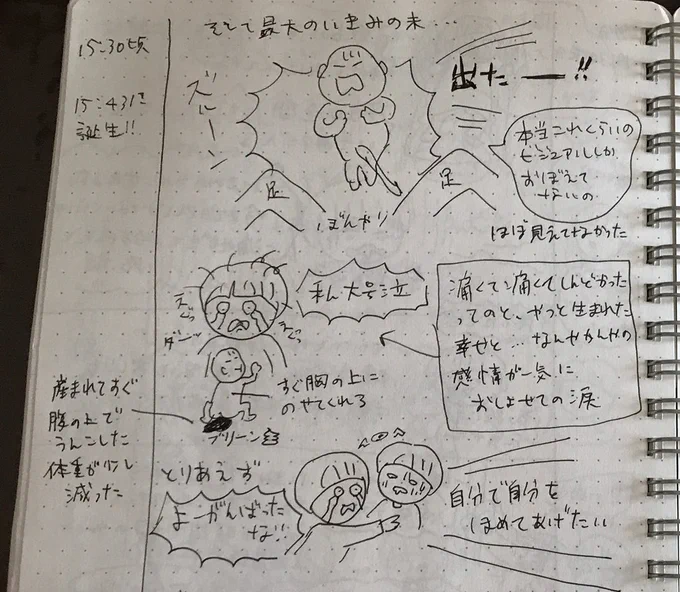 そして最大のいきみの末…
15:30頃
15:43に
誕生!!
ズルーン
出たー!!
足
足
ぼんやり
本当これくらいの
ビジュアルしか
おぼえて
ないの
ほぼ見えてなかった
私大号泣
えぐっ
えぐっ
ダーッ
痛くて痛くてしんどかった
ってのと、やっと生まれた
幸せと…なんやかんやの
感情が一気に
おしよせての涙
すぐ胸の上に
のせてくれる
産まれてすぐ
腹の上で
うんこした
体重が少し
減った
ブリーン
とりあえず
よーがんばった
な!!
自分で自分を
ほめてあげたい